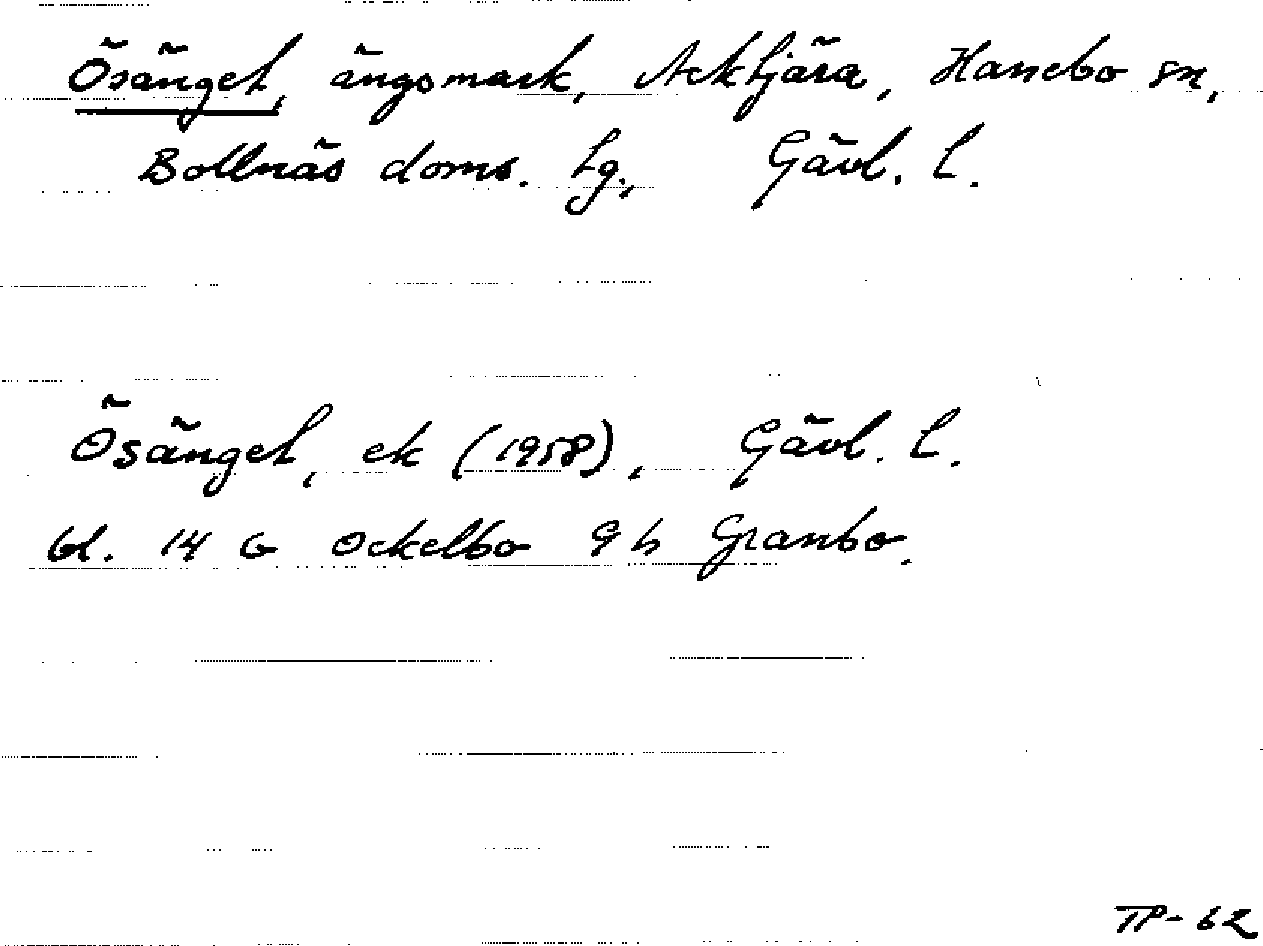 Ösänget, ängsmark, Acktjära, Hanebo sn,
Bollnäs doms. tg., Gävl. l.
Ösänget, ek (1958), Gävl. l.
bl. 14 G Ockelbo 9 h Granbo.
TP-62